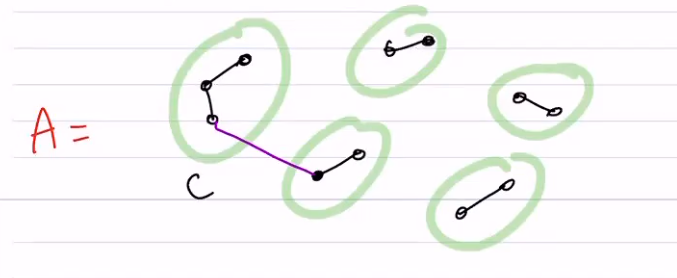 A =
C